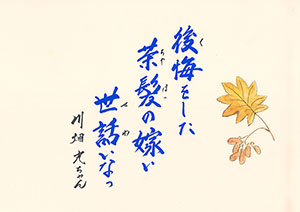 後悔をした
茶髪の嫁い
世話いなっ
川畑 光ちゃん